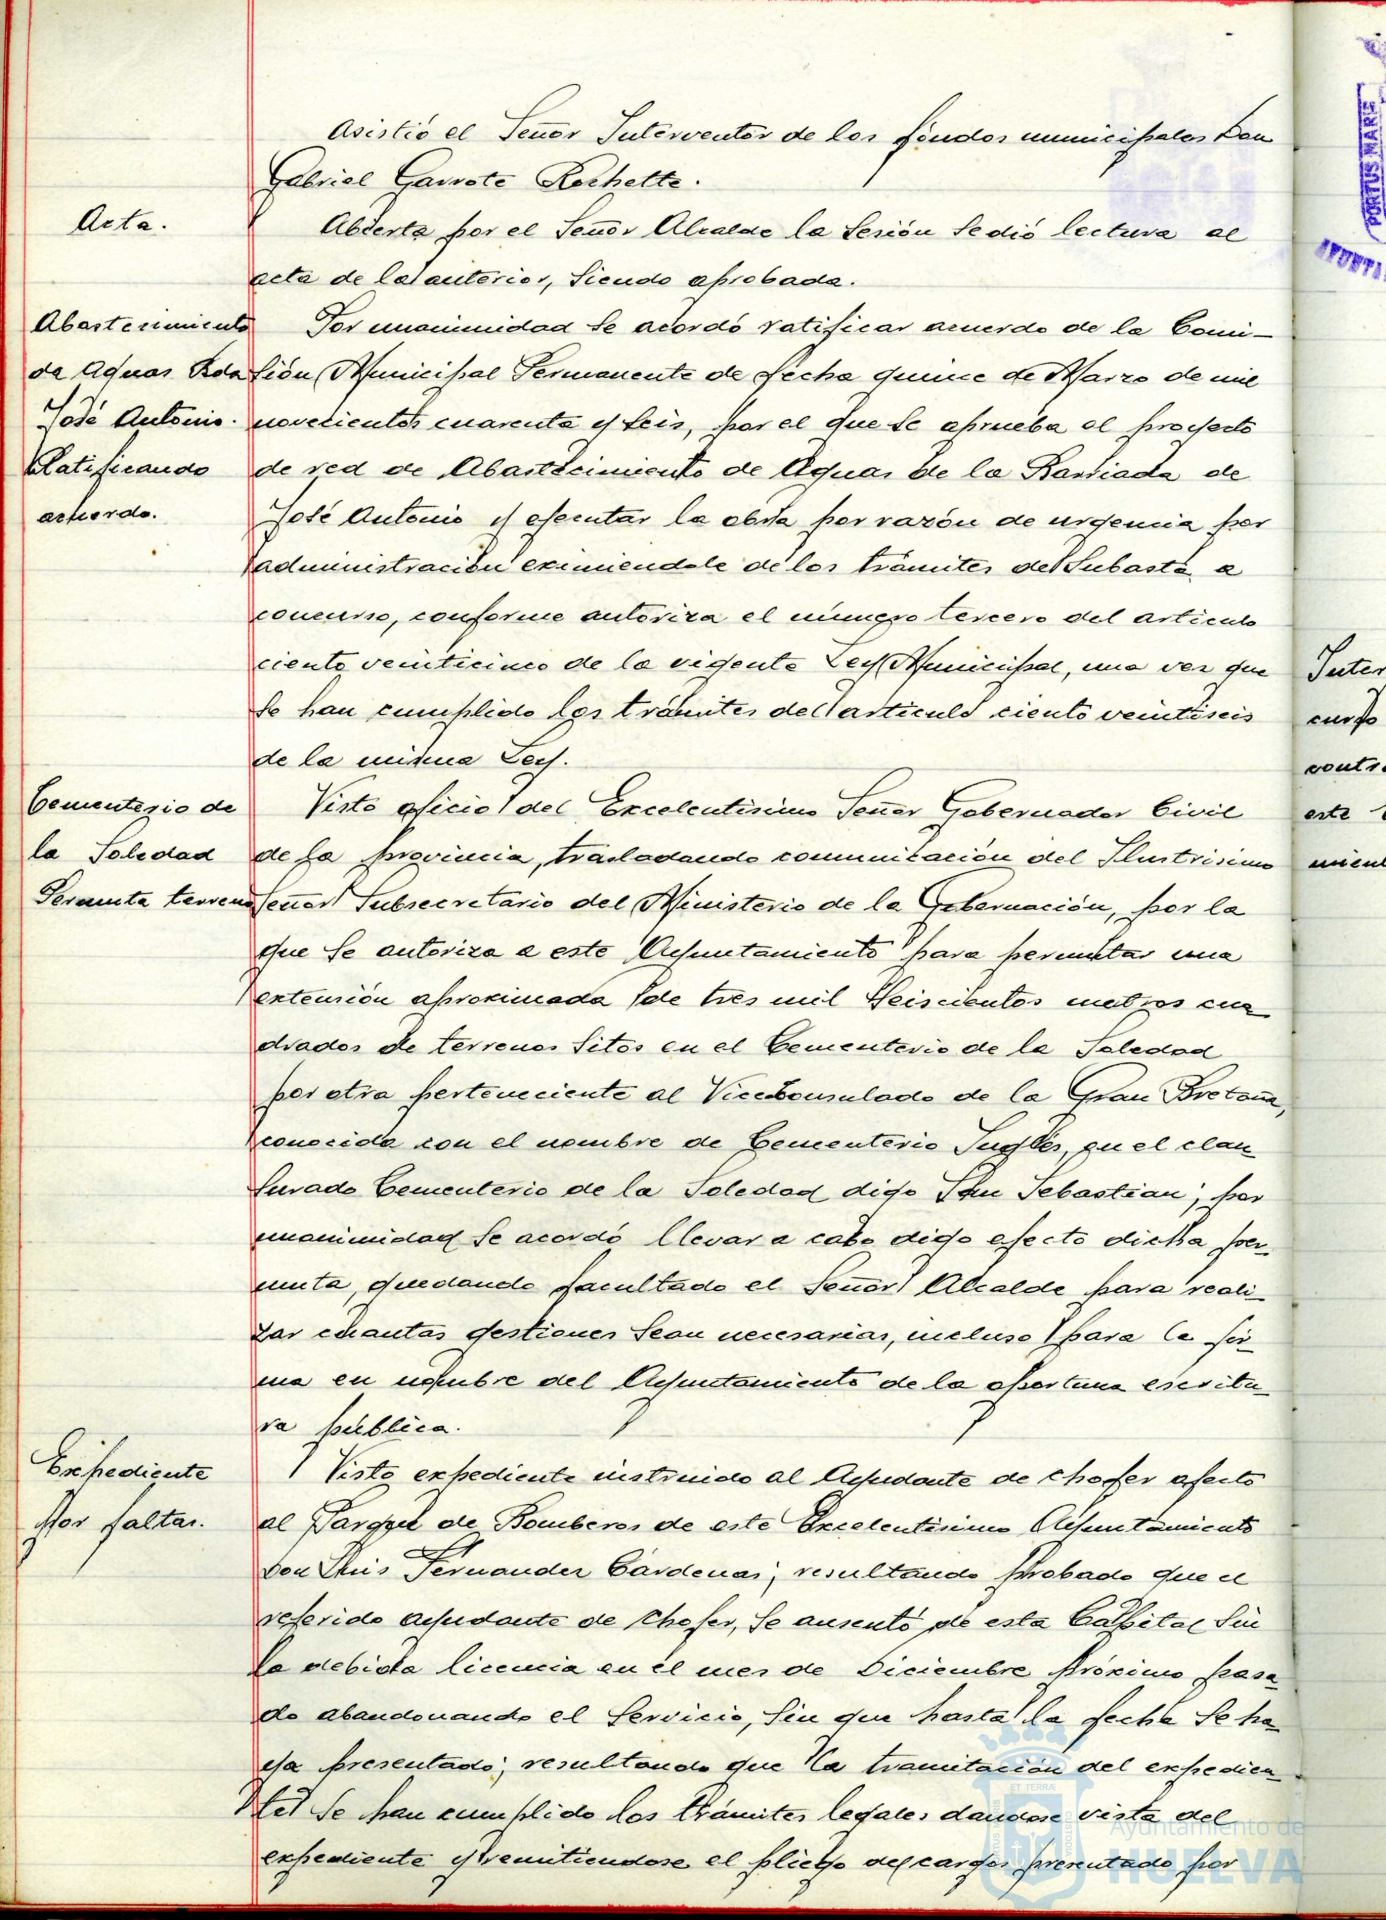 Asistió el Señor Interventor de los fondos municipales Don
Gabriel Garrote Rochette.
Acta.
Abierta por el Señor Alcalde la sesión se dió lectura al
acta de la anterior, siendo aprobada.
Abastecimiento
de Aguas Bda
José Antonio.
Ratificando
acuerdo.
Por unanimidad se acordó ratificar acuerdo de la Comi-
sión Municipal Permanente de fecha quince de Marzo de mil
novecientos cuarenta y seis, por el que se aprueba el proyecto
de red de Abastecimiento de Aguas de la Barriada de
José Antonio y ejecutar la obra por razón de urgencia por
administración eximiendole de los trámites de Subasta a
concurso, conforme autoriza el número tercero del articulo
ciento veinticinco de la vigente Ley Municipal, una vez que
se han cumplido los trámites del articulo ciento veintiseis
de la misma Ley.
Cementerio de
la Soledad
Permuta terreno
Visto oficio del Excelentisimo Señor Gobernador Civil
de la provincia, trasladando comunicación del Ilustrisimo
Señor Subsecretario del Ministerio de la Gobernación, por la
que se autoriza a este Ayuntamiento para permutar una
extensión aproximada de tres mil seiscientos metros cua
drados de terrenos sitos en el Cementerio de la Soledad
por otra perteneciente al ViceConsulado de la Gran Bretaña,
conocida con el nombre de Cementerio Inglés, en el clau
surado Cementerio de la Soledad digo San Sebastian; por
unanimidad se acordó llevar a cabo digo efecto dicha per-
muta, quedando facultado el Señor Alcalde para reali-
zar cuantas gestiones sean necesarias, incluso para la fir
ma en nombre del Ayuntamiento de la oportuna escritu
ra pública.
Expediente
por faltas.
Visto expediente instruido al Ayudante de chofer afecto
al Parque de Bomberos de este Excelentisimo Ayuntamiento
Don Luis Fernandez Cárdenas; resultando probado que el
referido ayudante de chofer, se ausentó de esta Capital sin
la debida licencia en el mes de Diciembre próximo pasa
do abandonando el servicio, sin que hasta la fecha se ha
ya presentado; resultando que la tramitación del expedien
te se han cumplido los trámites legales dandose vista del
expediente y remitiendose el pliego de cargos presentado por
PORTUS MARIS
AYUNTA
Inter
curso
contr
este
mient
ET TERRÆ
CUSTODIA
Ayuntamiento de
HUELVA